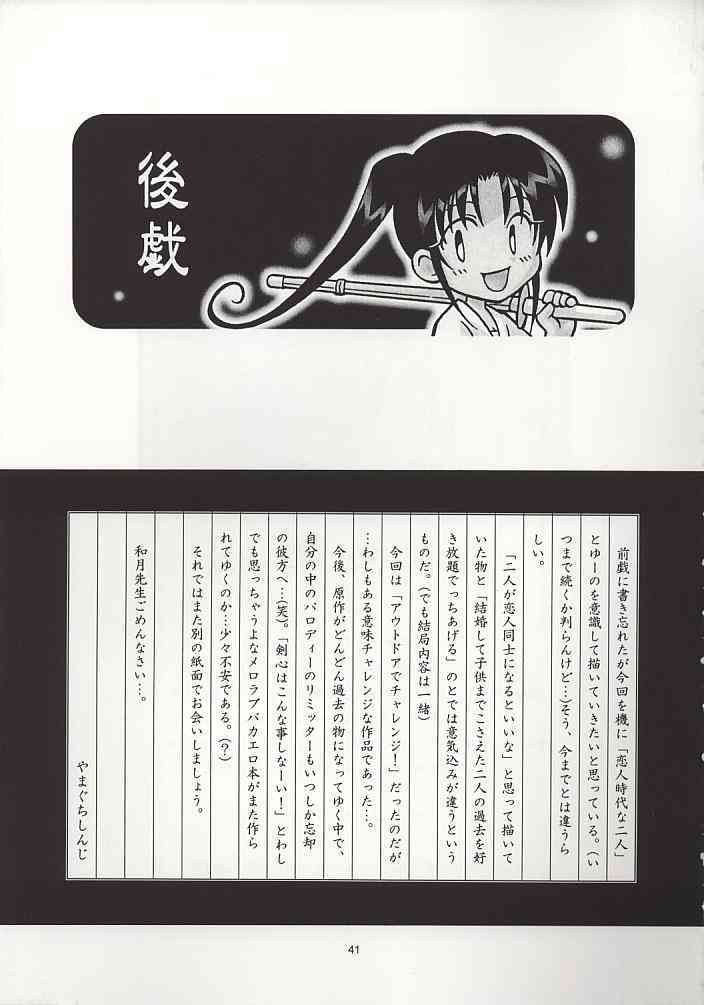 後戯
前戯に書き忘れたが今回を機に「恋人時代な二人」
とゆーのを意識して描いていきたいと思っている。(い
つまで続くか判らんけど…)そう、今までとは違うら
しい。
「二人が恋人同士になるといいな」と思って描いて
いた物と「結婚して子供までこさえた二人の過去を好
き放題でっちあげる」のとでは意気込みが違うという
ものだ。(でも結局内容は一緒)
今回は「アウトドアでチャレンジ!」だったのだが
…わしもある意味チャレンジな作品であった…。
今後、原作がどんどん過去の物になってゆく中で、
自分の中のパロディーのリミッターもいつしか忘却
の彼方へ…(笑)。「剣心はこんな事しなーい!」とわし
でも思っちゃうよなメロラブバカエロ本がまた作ら
れてゆくのか…少々不安である。(?)
それではまた別の紙面でお会いしましょう。
和月先生ごめんなさい…。
やまぐちしんじ
41